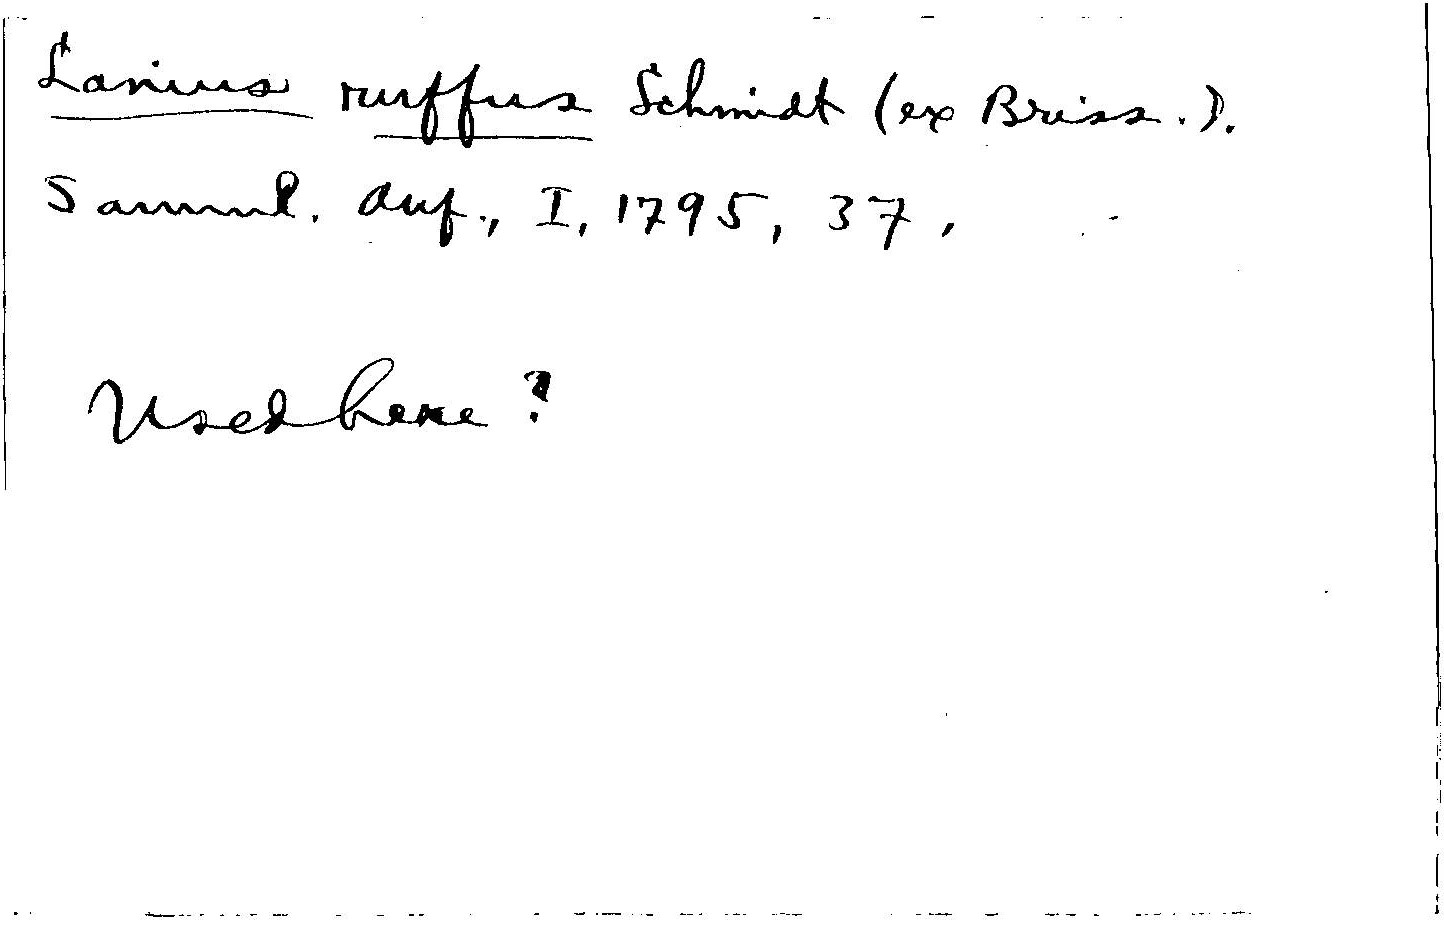 Lanius ruffus Schmidt (ex Briss.).
Samml. Auf., I, 1795, 37,
Used here?